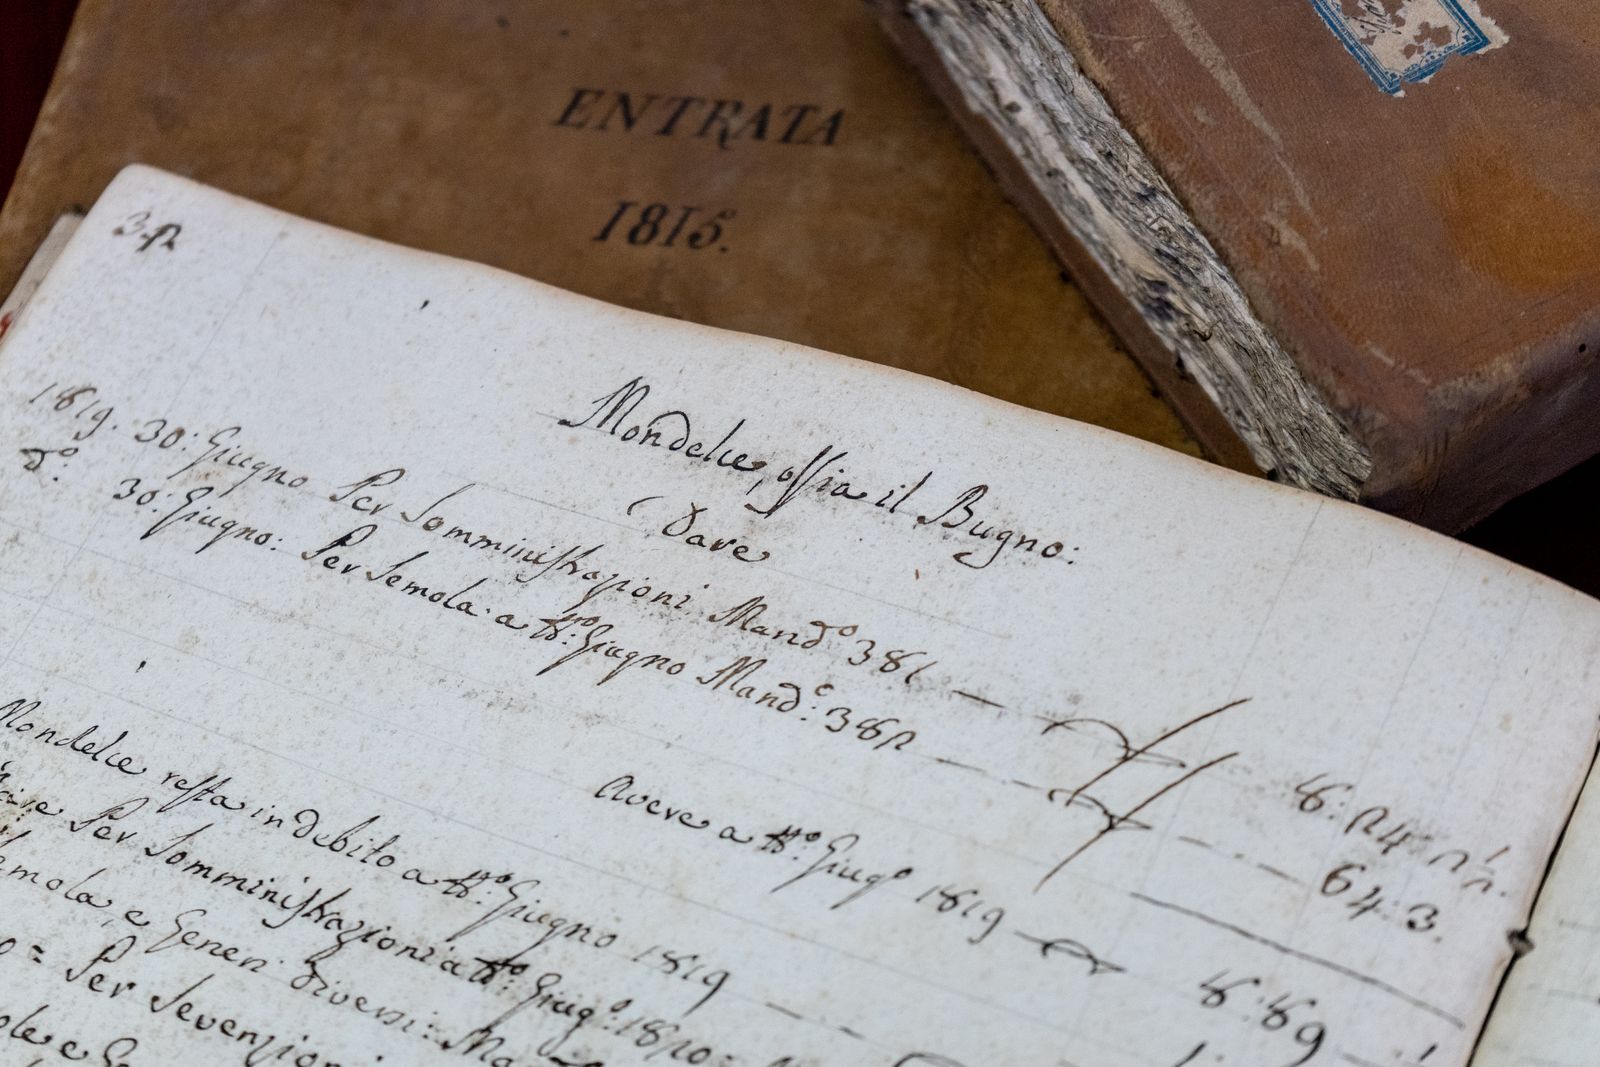 ENTRATA
1815.
32
Mondelce, ossia il Bugno:
Dare
1819. 30: Giugno Per Somministrazioni Mand.o 381 8: 24
d.o 30: Giugno: Per Semola a tt.o Giugno Mand.o: 382 64: 3.
Avere a tt.o: Giug.o 1819 8: 89
Mondelce resta in debito a tt.o: Giugno 1819
Per Somministrazioni a tt.o Giug.o: 1820=
e Generi diversi:
= Per Sevenzioni